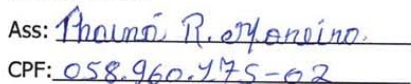 Ass: Thainá R. Moneino.
CPF: 058.960.175-02